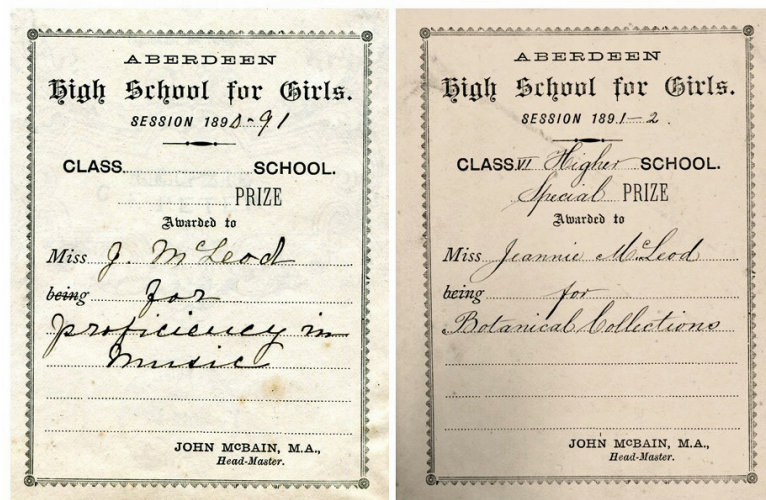 ABERDEEN
High School for Girls.
SESSION 1890-91
CLASS SCHOOL.
PRIZE
Awarded to
Miss J. McLeod
being for
proficiency in
Music
JOHN McBAIN, M.A.,
Head-Master.
ABERDEEN
High School for Girls.
SESSION 1891-2.
CLASS VI Higher SCHOOL.
Special PRIZE
Awarded to
Miss Jeannie McLeod
being for
Botanical Collections
JOHN McBAIN, M.A.,
Head-Master.